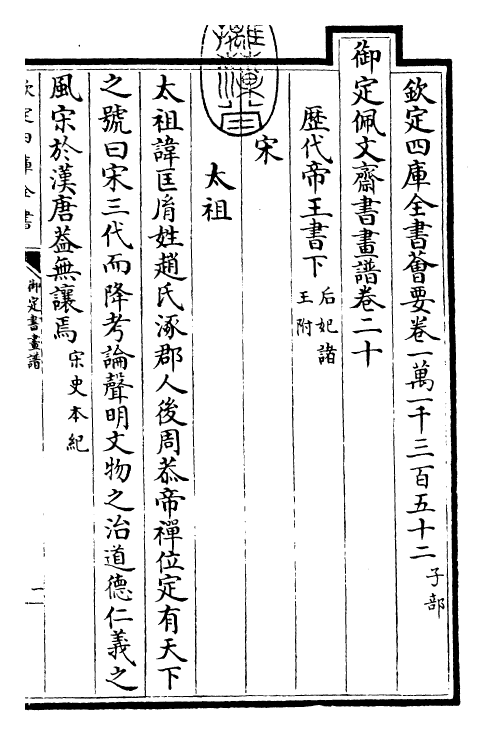 欽定四庫全書薈要卷一萬一千三百五十二 子部
御定佩文齋書畫譜卷二十
歷代帝王書下 后妃諸
王附
宋
太祖
太祖諱匡胤姓趙氏涿郡人後周恭帝禪位定有天下
之號曰宋三代而降考論聲明文物之治道德仁義之
風宋於漢唐葢無讓焉 宋史本紀
欽定四庫全書
御定書畫譜